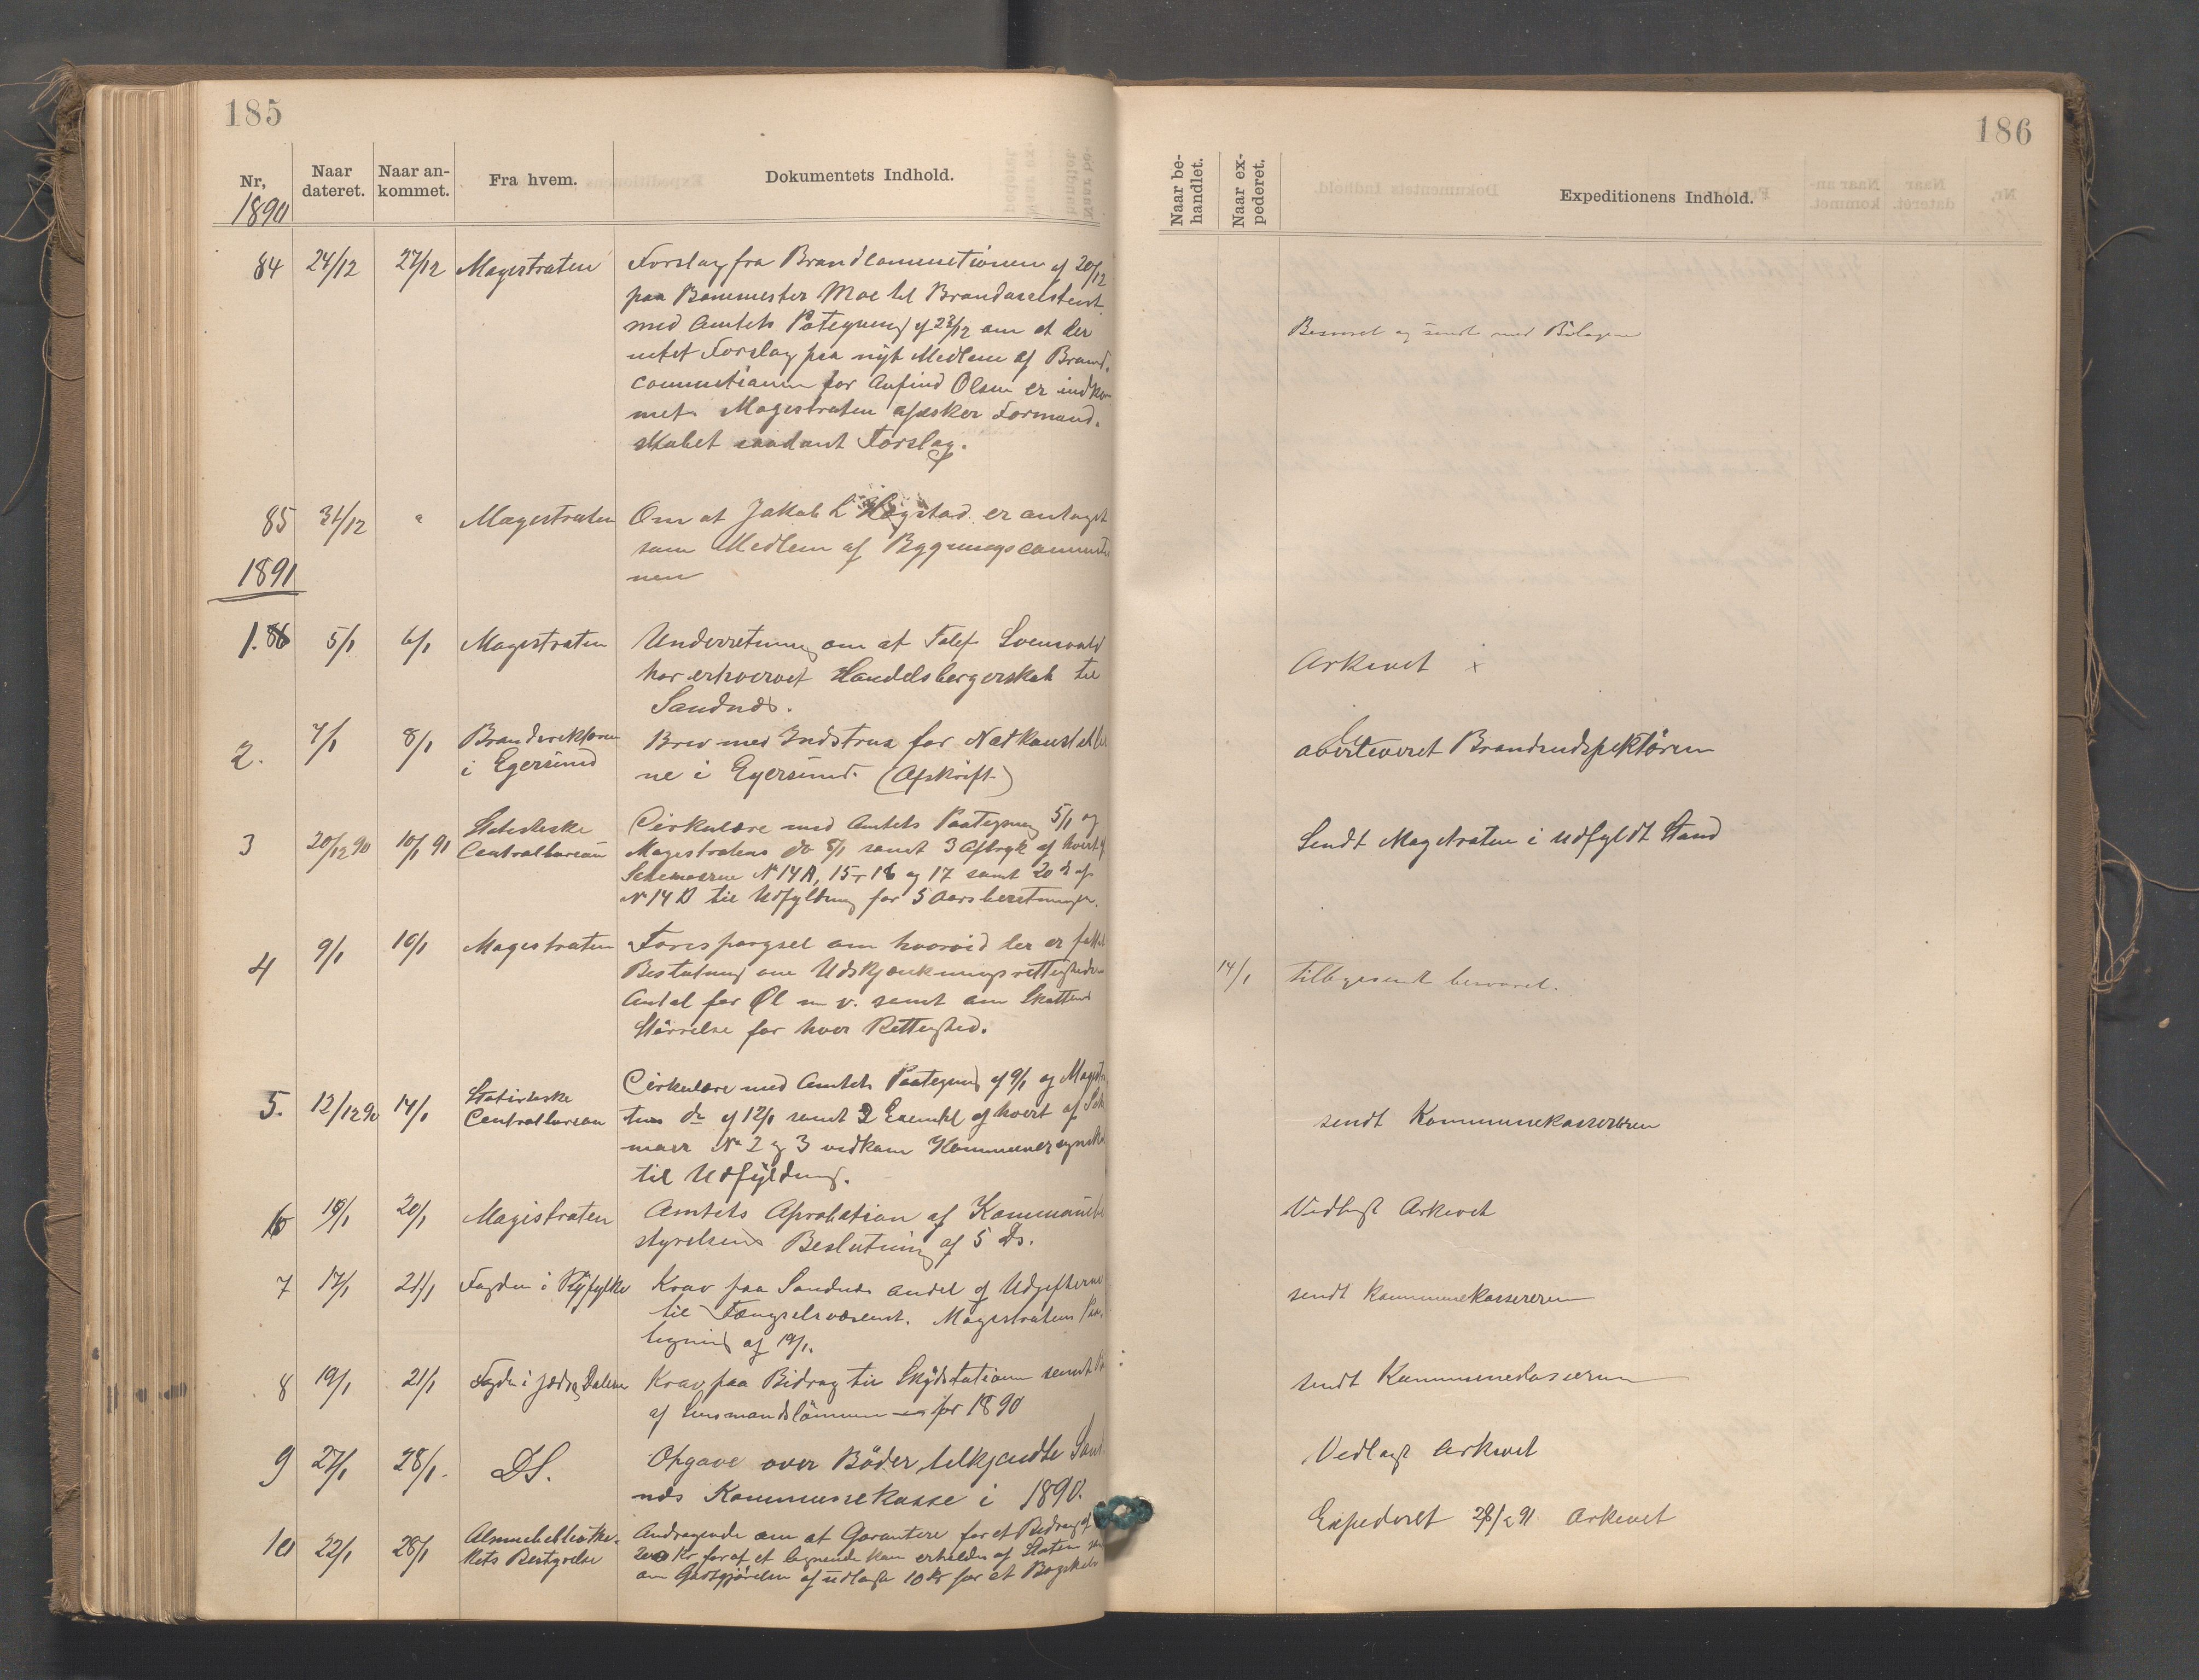 185
Nr, Naar dateret. Naar ankommet. Fra hvem. Dokumentets Indhold.
1890
84 24/12 27/12 Magistraten Forslag fra Brandcommitionen af 20/12
paa Banemester Moe til Brandassistent
med Amtets Påtegning af 23/12 om at der
intet Forslag paa nyt Medlem af Brand-
commitionen for Anfind Olsen er indkom
met. Magistraten afæsker Formand-
skabet saadant Forslag.
85 31/12 " Magistraten Om at Jakob L Høgstad er antaget
som Medlem af Bygningscommitio
nen
1891
1. 86 5/1 6/1 Magistraten Underretning om at Tolef Svensvold
har erhvervet Handelsborgerskab til
Sandnæs.
2. 7/1 8/1 Branddirektøren Brev med Indstrux for Natkonstable
i Egersund ne i Egersund. (Afskrift)
3 20/12 90 10/1 91 Statistiske Cirkulære med Amtets Paategning 5/1 og
Centralbureau Magistratens do 8/1 samt 3 Aftryk af hvert af
Schemaerne No 14A, 15, 16 og 17 samt 20 af
No 14 B til Udfyldning for 5 Aarsberetninger.
4 9/1 10/1 Magistraten Forespørgsel om hvorvid der er fattet
Beslutning om Udskjænkningsrettigheders
Antal for Øl m v. samt om Skattens
Störrelse for hver Rettighed.
5. 12/12 90 14/1 Statistiske Cirkulære med Amtets Paategning af 9/1 og Magistra
Centralbureau tens do af 12/1 samt 2 Exempl af hvert af Sche
maer No 2 og 3 vedkom Kommuneregnskab
til Udfyldning.
6 18/1 20/1 Magistraten Amtets Aprobation af Kommune
styrelsens Beslutning af 5 Ds.
7 17/1 21/1 Fogden i Ryfylke Krav paa Sandnæs Andel af Udgifterne
til Fængselsvæsenet. Magistratens Paa-
tegning af 19/1.
8 19/1 21/1 Fogden i Jæd og Dalerne Krav paa Bidrag til Skydsstationen samt
af Lensmandslönnen for 1890
9 27/1 28/1. DS. Opgave over Bøder tilkjendte Sand
næs Kommunekasse i 1890.
10 22/1 28/1 Almuebibliothe- Andragende om at Garantere for et Bidrag af
kets Bestyrelse 200 Kr for at et lignende kan erholdes af Staten
om Godtgjörelse af udlagte 10 Kr for et Bogskab
186
Naar behandlet. Naar expederet. Expeditionens Indhold.
Besvaret og sendt med Bilagene
Arkivet x
averteret Brandindspektören
Sendt Magistraten i udfyldt Stand
14/1 tilbagesendt besvaret.
sendt Kommunekassereren
Vedlagt Arkivet
sendt Kommunekassereren
sendt Kommunekassereren
Vedlagt Arkivet
Expederet 28/2 91 Arkivet